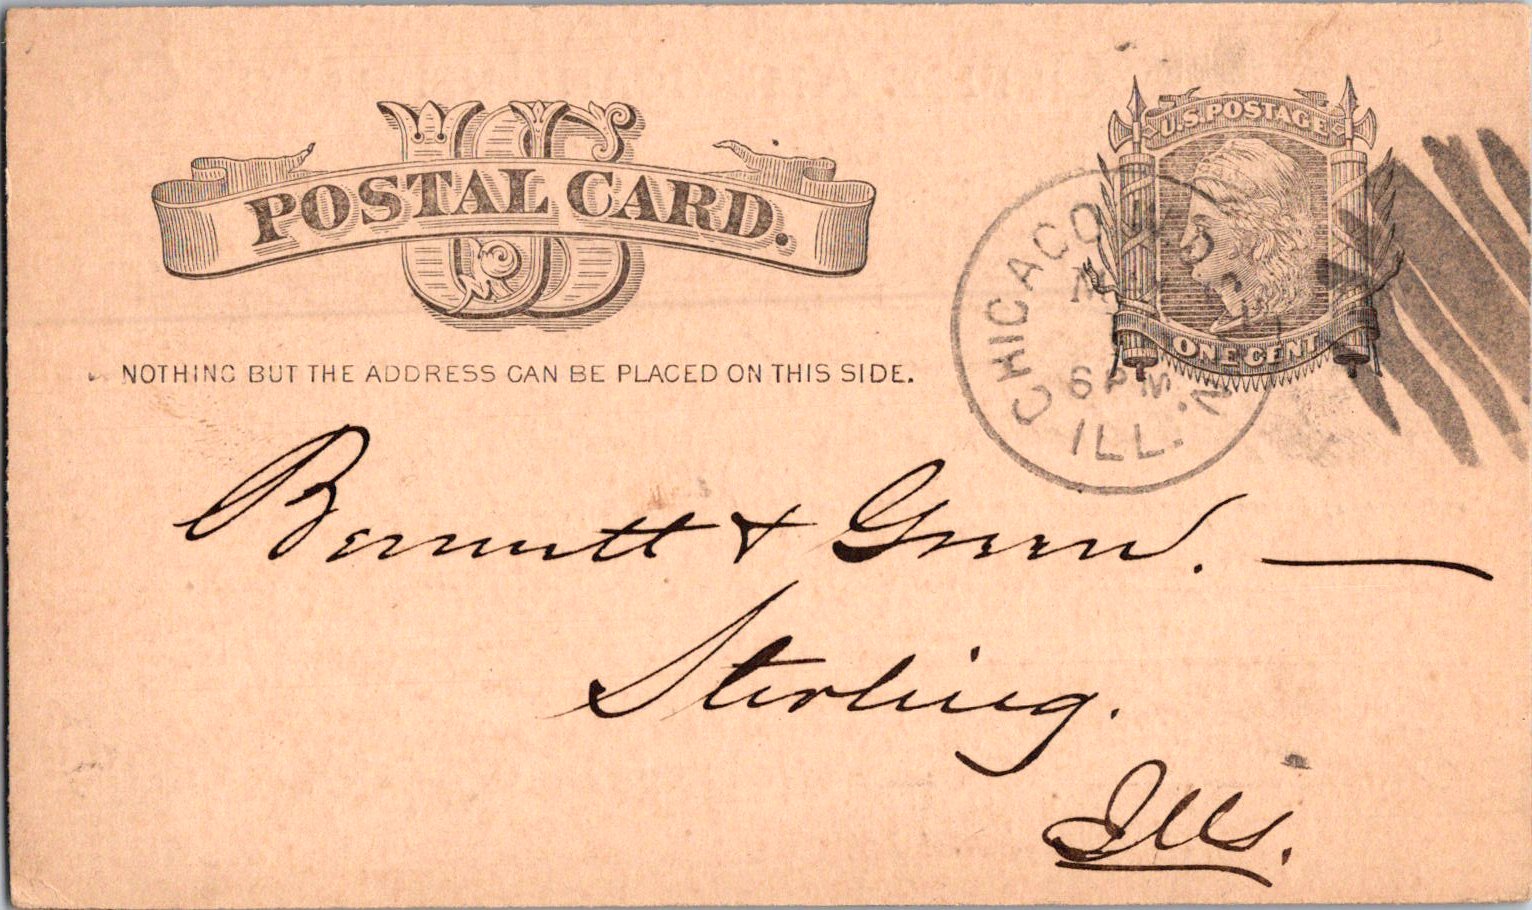 US
POSTAL CARD.
U.S. POSTAGE
ONE CENT
NOTHING BUT THE ADDRESS CAN BE PLACED ON THIS SIDE.
CHICAGO
6 PM
ILL.
Bennett & Green.
Sterling.
Ills.